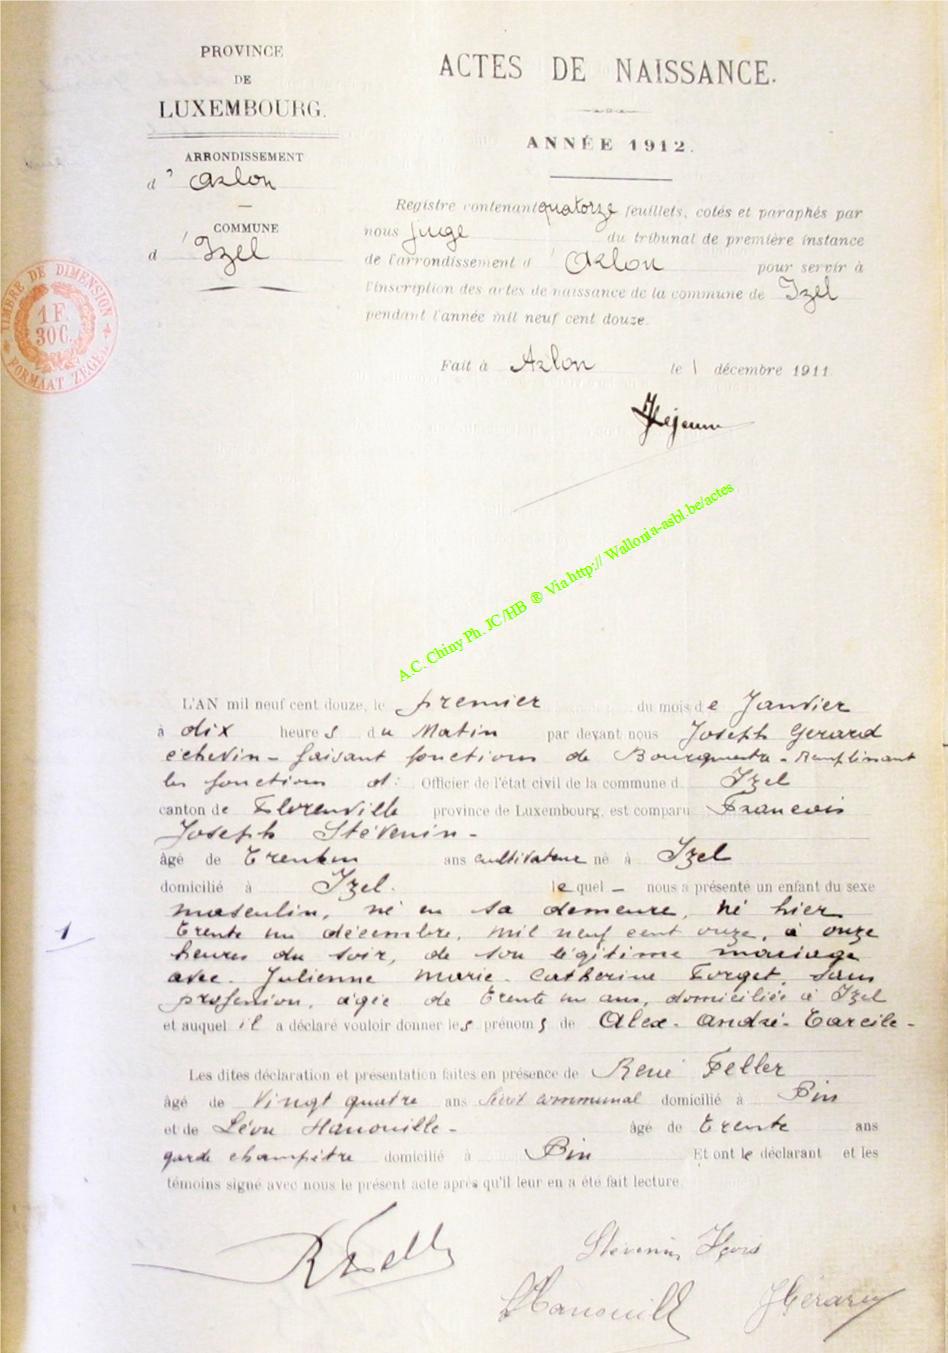 PROVINCE
DE
LUXEMBOURG.
ARRONDISSEMENT
d'Arlon
COMMUNE
d'Izel
TIMBRE DE DIMENSION
1 F.
30 C.
FORMAAT ZEGEL
ACTES DE NAISSANCE.
ANNÉE 1912.
Registre contenant quatorze feuillets, cotés et paraphés par
nous Juge du tribunal de première instance
de l'arrondissement d'Arlon pour servir à
l'inscription des actes de naissance de la commune de Izel
pendant l'année mil neuf cent douze.
Fait à Arlon le 1 décembre 1911
Lejeune
A.C. Chiny Ph. JC/HB ® Via http:// Wallonia-asbl.be/actes
L'AN mil neuf cent douze, le premier du mois de Janvier
à dix heures du Matin par devant nous Joseph Gérard
échevin - faisant fonctions de Bourgmestre - Remplissant
les fonctions d' Officier de l'état civil de la commune d Izel
canton de Florenville province de Luxembourg, est comparu Francois
Joseph Stévenin -
âgé de ans cultivateur né à Izel
domicilié à Izel. lequel - nous a présenté un enfant du sexe
masculin, né en sa demeure, né hier
1 trente un décembre, mil neuf cent onze, à onze
heures du soir, de son légitime mariage
avec Julienne Marie - Catherine Forget, sans
profession, agée de trente un ans, domiciliée à Izel
et auquel il a déclaré vouloir donner les prénoms de Alex - André - Tarcile -
Les dites déclaration et présentation faites en présence de René Feller
âgé de Vingt quatre ans Secrét communal domicilié à Pin
et de Léon Hanouille - âgé de trente ans
garde champêtre domicilié à Pin Et ont le déclarant et les
témoins signé avec nous le présent acte après qu'il leur en a été fait lecture.
R Feller
Stévenin Fçois
L Hanouille
J Gérard